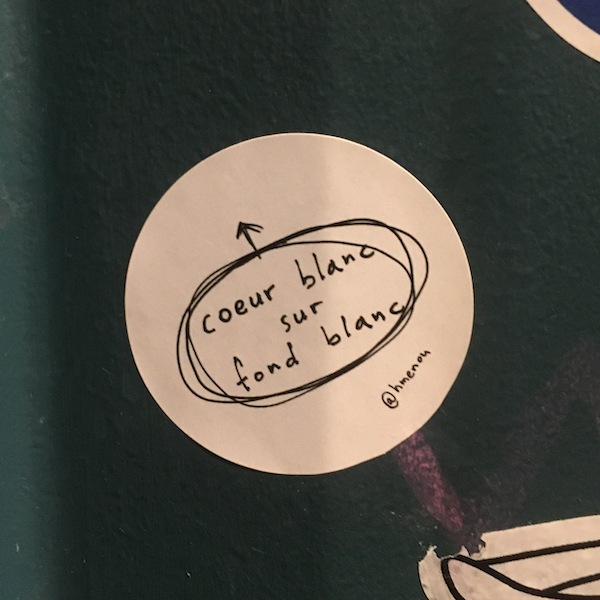 coeur blanc
sur
fond blanc
@hmenou